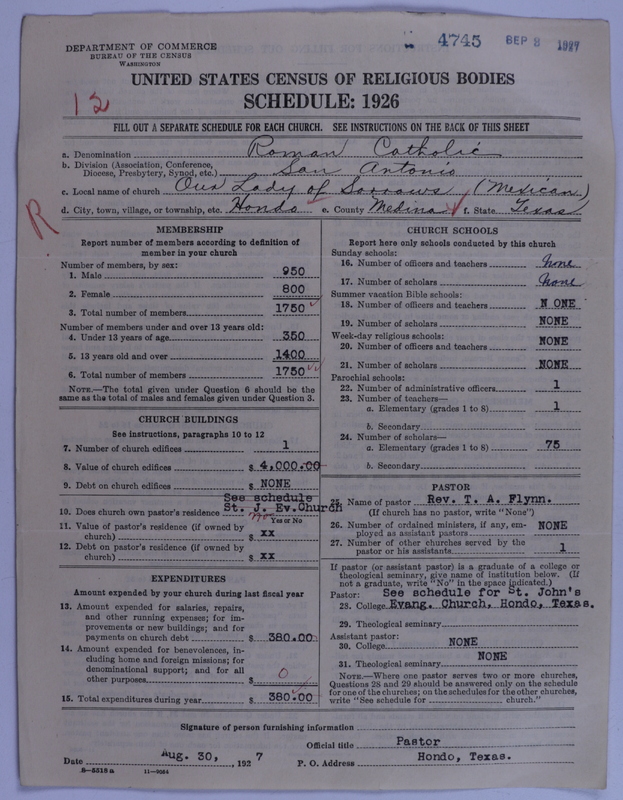 4745 SEP 8 1927
DEPARTMENT OF COMMERCE
BUREAU OF THE CENSUS
WASHINGTON
UNITED STATES CENSUS OF RELIGIOUS BODIES
12
SCHEDULE: 1926
FILL OUT A SEPARATE SCHEDULE FOR EACH CHURCH. SEE INSTRUCTIONS ON THE BACK OF THIS SHEET
a. Denomination Roman Catholic
b. Division (Association, Conference,
Diocese, Presbytery, Synod, etc.) San Antonio
c. Local name of church Our Lady of Sorrows (Mexican)
d. City, town, village, or township, etc. Hondo e. County Medina f. State Texas
R
MEMBERSHIP
Report number of members according to definition of
member in your church
Number of members, by sex:
1. Male 950
2. Female 800
3. Total number of members 1750
Number of members under and over 13 years old:
4. Under 13 years of age 350
5. 13 years old and over 1400
6. Total number of members 1750
NOTE.—The total given under Question 6 should be the
same as the total of males and females given under Question 3.
CHURCH BUILDINGS
See instructions, paragraphs 10 to 12
7. Number of church edifices 1
8. Value of church edifices $ 4,000.00
9. Debt on church edifices $ NONE
See schedule
10. Does church own pastor's residence St. J. Ev.Church
no Yes or No
11. Value of pastor's residence (if owned by
church) $ xx
12. Debt on pastor's residence (if owned by
church) $ xx
EXPENDITURES
Amount expended by your church during last fiscal year
13. Amount expended for salaries, repairs,
and other running expenses; for im-
provements or new buildings; and for
payments on church debt $ 380.00
14. Amount expended for benevolences, in-
cluding home and foreign missions; for
denominational support; and for all
other purposes $ 0
15. Total expenditures during year $ 380.00
CHURCH SCHOOLS
Report here only schools conducted by this church
Sunday schools:
16. Number of officers and teachers None
17. Number of scholars None
Summer vacation Bible schools:
18. Number of officers and teachers N ONE
19. Number of scholars NONE
Week-day religious schools:
20. Number of officers and teachers NONE
21. Number of scholars NONE
Parochial schools:
22. Number of administrative officers 1
23. Number of teachers—
a. Elementary (grades 1 to 8) 1
b. Secondary
24. Number of scholars—
a. Elementary (grades 1 to 8) 75
b. Secondary
PASTOR
25. Name of pastor Rev. T. A. Flynn.
(If church has no pastor, write "None")
26. Number of ordained ministers, if any, em-
ployed as assistant pastors NONE
27. Number of other churches served by the
pastor or his assistants 1
If pastor (or assistant pastor) is a graduate of a college or
theological seminary, give name of institution below. (If
not a graduate, write "No" in the space indicated.)
Pastor: See schedule for St. John's
28. College Evang. Church, Hondo, Texas.
29. Theological seminary
Assistant pastor:
30. College NONE
31. Theological seminary NONE
NOTE.—Where one pastor serves two or more churches,
Questions 28 and 29 should be answered only on the schedule
for one of the churches; on the schedules for the other churches,
write "See schedule for church."
Signature of person furnishing information
Official title Pastor
Date Aug. 30, 1927 P. O. Address Hondo, Texas.
8—5518 a 11—9064